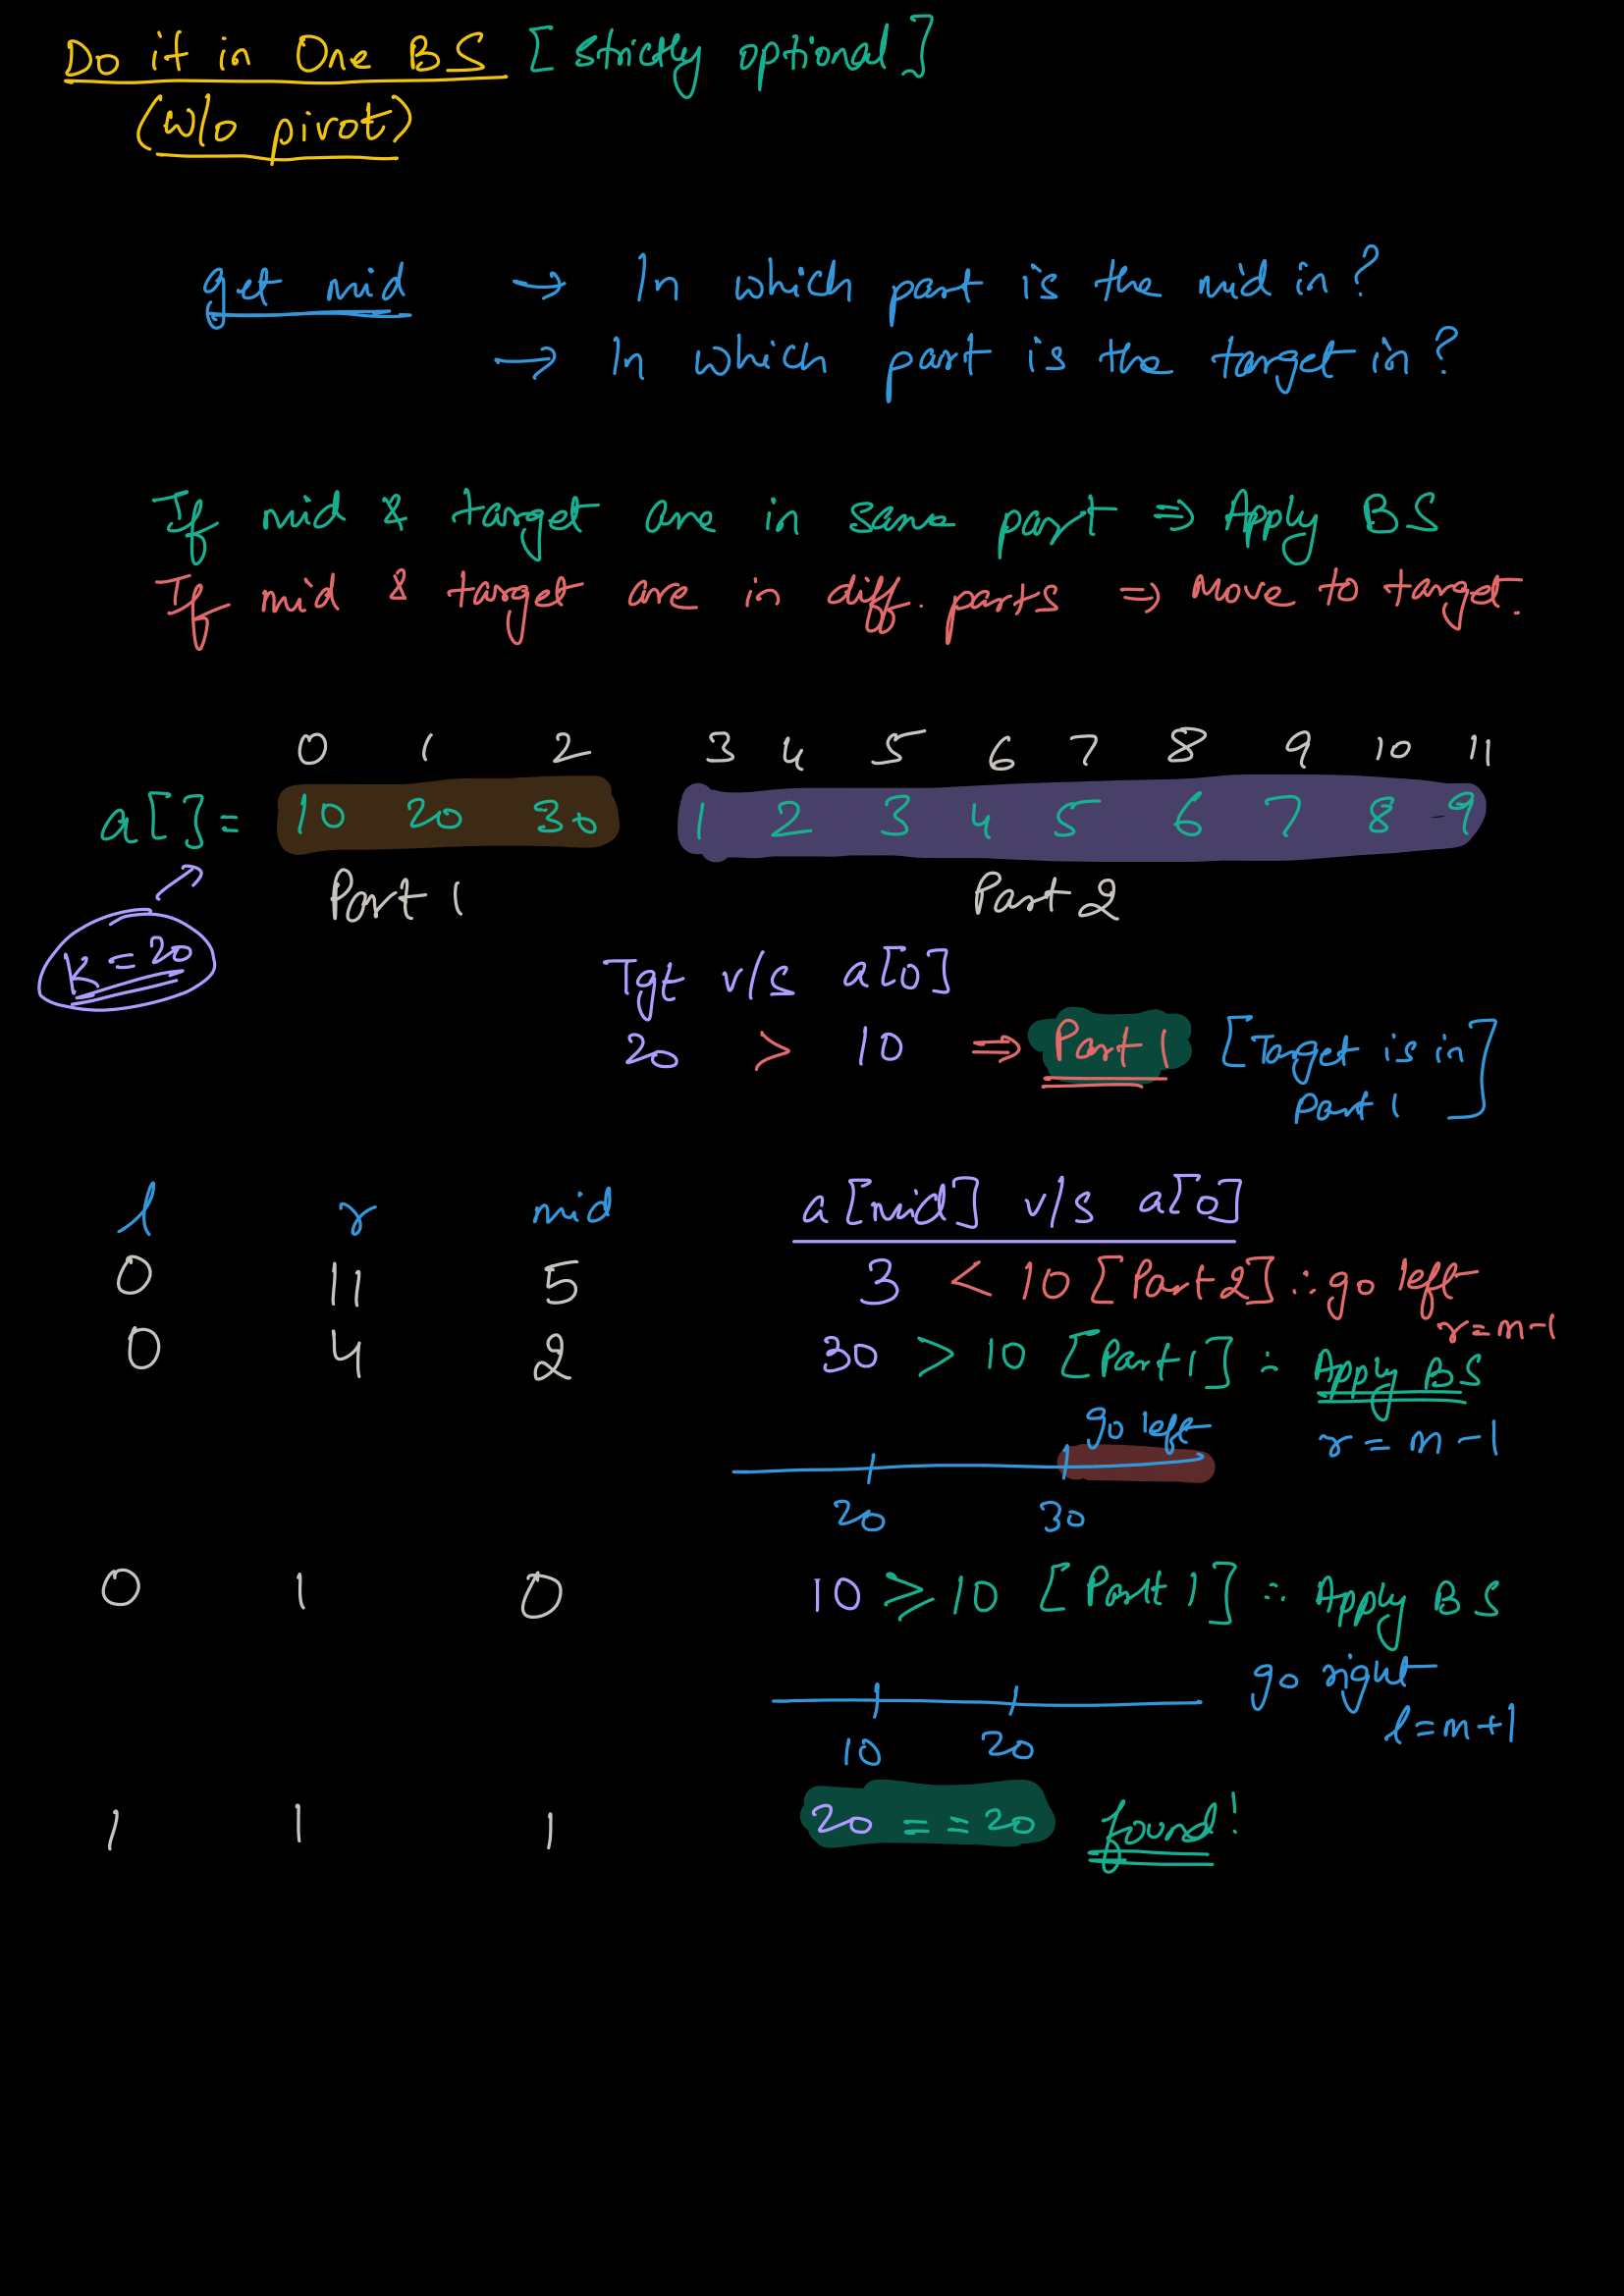 Do it in One BS [strictly optional]
(w/o pivot)
get mid → In which part is the mid in?
→ In which part is the target in?
If mid & target are in same part ⇒ Apply BS
If mid & target are in diff. parts ⇒ Move to target.
0 1 2 3 4 5 6 7 8 9 10 11
a[]= 10 20 30 1 2 3 4 5 6 7 8 9
Part 1 Part 2
K=20
Tgt v/s a[0]
20 > 10 ⇒ Part 1 [Target is in
Part 1]
l r mid a[mid] v/s a[0]
0 11 5 3 < 10 [Part 2] ∴ go left
r=m-1
0 4 2 30 > 10 [Part 1] ∴ Apply BS
go left r = m-1
20 30
0 1 0 10 ⩾ 10 [Part 1] ∴ Apply BS
go right
l=m+1
10 20
1 1 1 20 == 20 found!